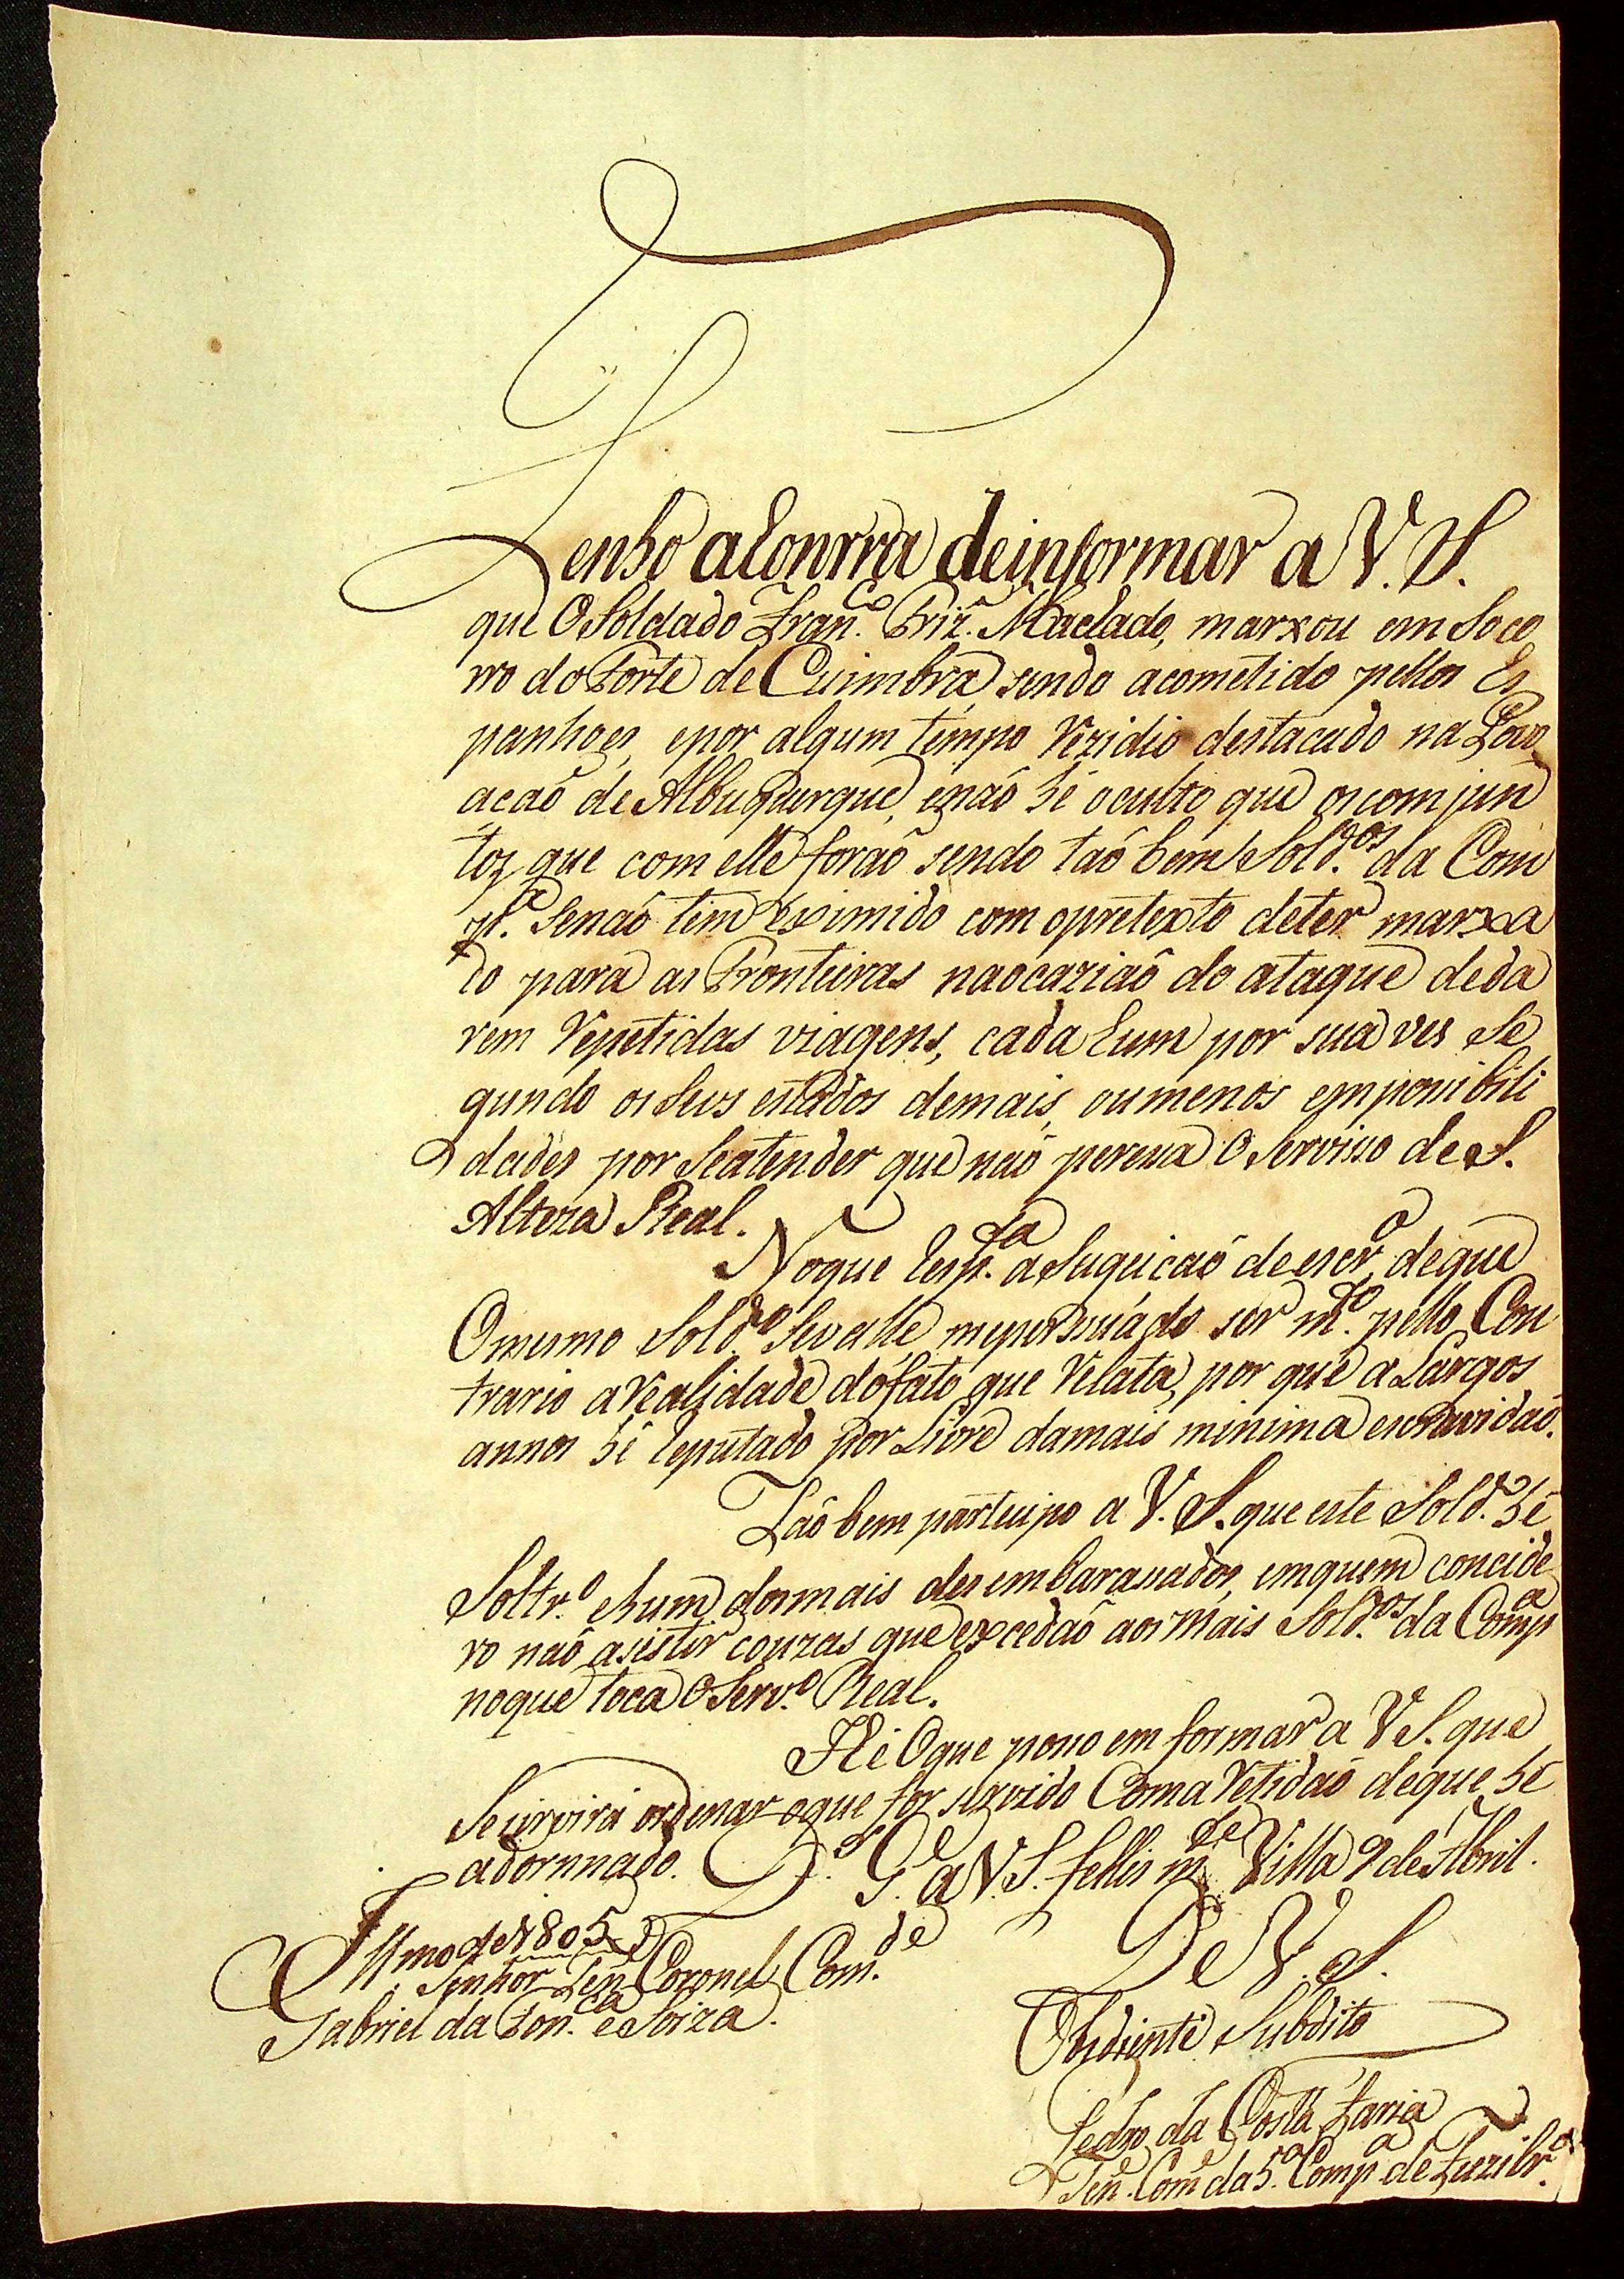 Tenho a honrra de informar a V. S.
que O Soldado Fran.co Friz. Machado, marxou em Soco
rro do Forte de Cuimbra, sendo acometido pellos Es
panhoes, e por algum tempo rezidio destacado na Povo
acaõ de Albuquerque, e naõ hé oculto que os comjun
tos que com elle foraõ sendo taõ bem Sold.os da Com
p.a Se naõ tem Eximido com o pretexto de ter marxa
do para as Fronteiras na ocaziaõ do ataque de da
rem repetidas viagens, cada hum por sua ves Se
gundo os Seus estados de mais, ou menos empossibili
dades por Se atender que naõ peressa O Servisso de S.
Alteza Real.
No que resp.ta a Sugeicaõ de escr.o de que
O mesmo Sold.o Se valle, me persuádo ser m.to pello Con
trario a realidade do fato que relata, por que a Largos
annos hé reputado por Livre da mais minima escravidaõ.
Taõ bem participo a V. S. que este Sold.o hé
Soltr.o e hum dos mais desembarassados, em quem concide
ro naõ asistir couzas que excedaõ aos mais Sold.os da Comp.a
no que toca O Serv.o Real.
Hé O que posso em formar a V S. que
Se sirvirá ordenar o que for servido Com a retidaõ de que hé
adornnado. D.s G.e a V. S. fellis m.te Villa 9 de Abril.
de 1805
Ill.mo Senhor Ten.e Coronel Com.de
Gabriel da Fon.ca e Soiza.
De V. S.
Obediente Subdito
Pedro da Costa Faria
Ten.e Com.e da 5.a Comp.a de Fuzilr.os